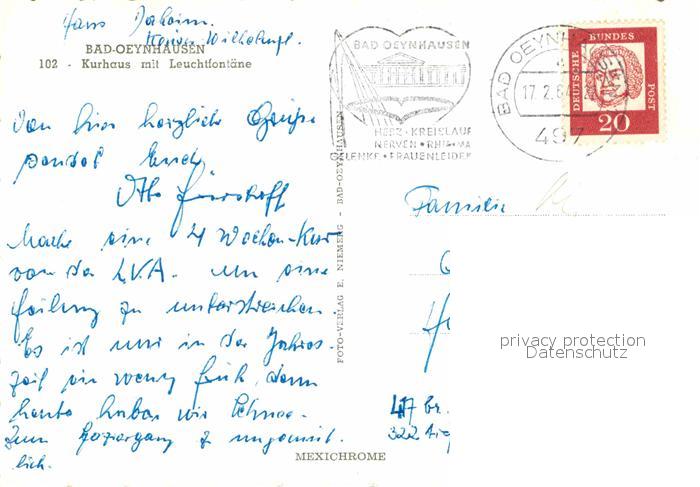 Haus Daheim.
Kaiser Wilhelmpl.
BAD-OEYNHAUSEN
102 - Kurhaus mit Leuchtfontäne
Von hier herzliche Grüße
sendet Euch
Otto
Mache eine 4 Wochen-Kur
von der LVA. um eine
Heilung zu unterstreichen.
Es ist nur in der Jahres-
zeit ein wenig früh, denn
heute haben wir Schnee.
Zum Spaziergang z ungemüt-
lich.
FOTO-VERLAG E. NIEMERG - BAD-OEYNHAUSEN
MEXICHROME
BAD OEYNHAUSEN
HERZ · KREISLAUF
NERVEN · RHEUMA
GELENKE · FRAUENLEIDEN
BAD OEYNH
17.2.64
497
DEUTSCHE BUNDESPOST
20
Familie
privacy protection
Datenschutz